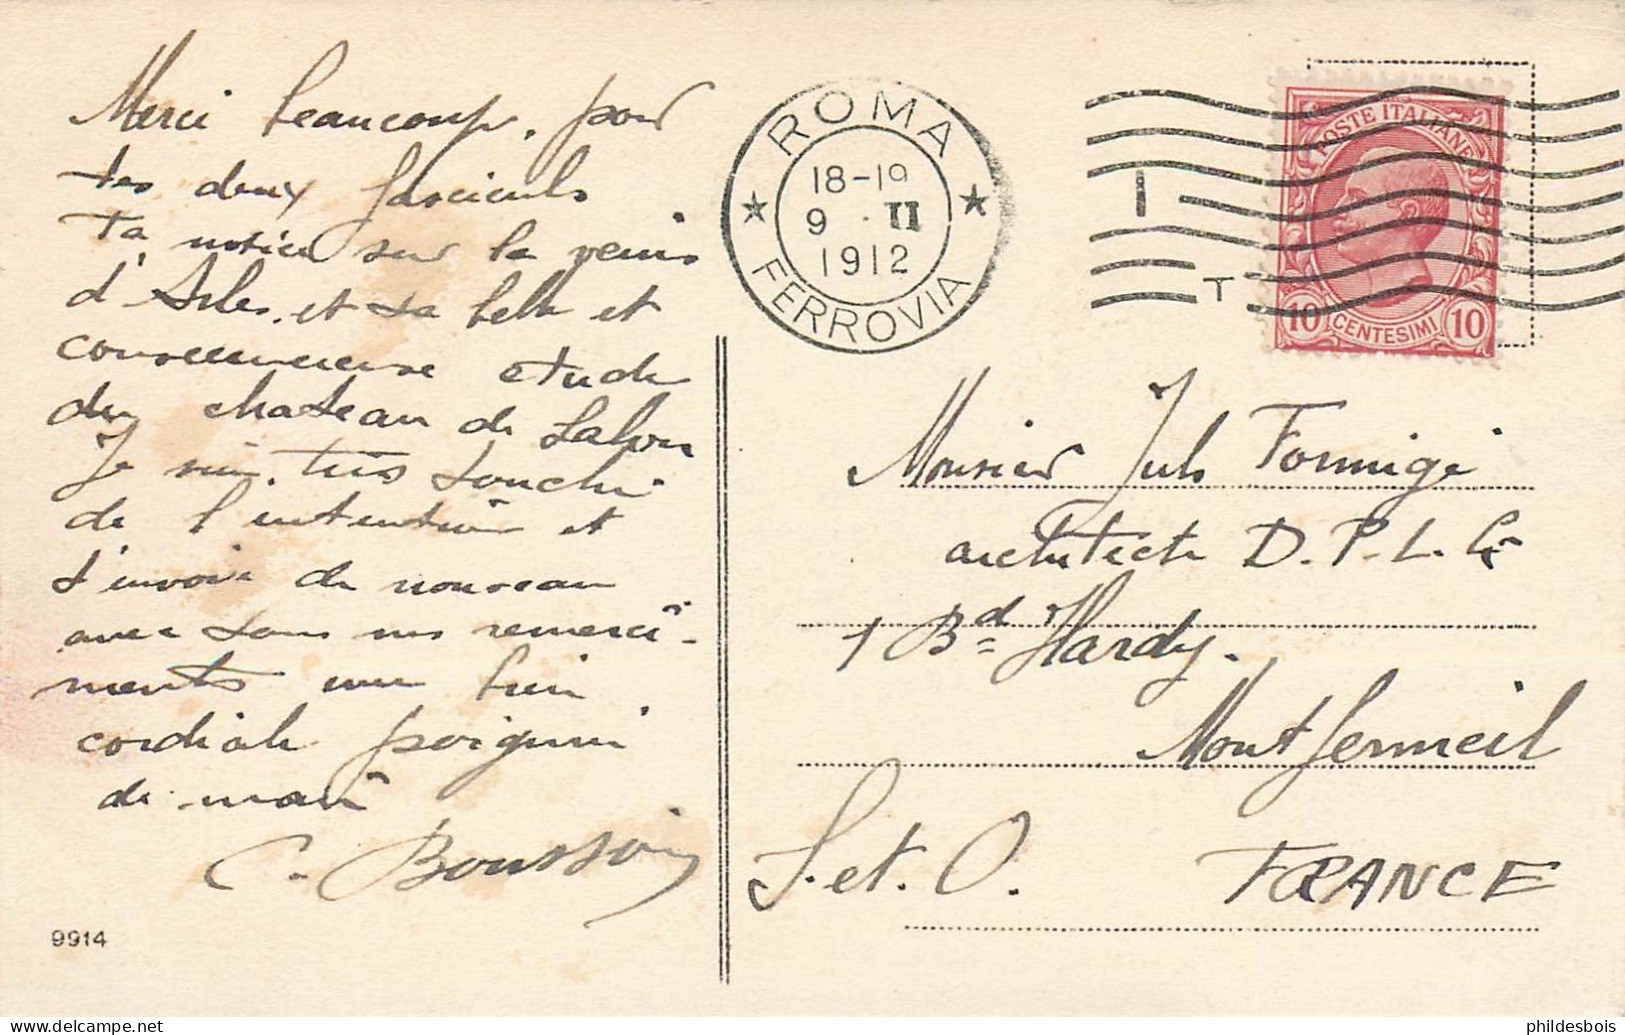 Merci beaucoup, pour
tes deux fascicules
Ta notice sur la venus
d'Arles, et ta belle et
consciencieuse etude
du chateau de Salon
Je suis très touché
de l'intention et
t'envoie de nouveau
avec tous mes remerci-
ments une bien
cordiale poignée
de main
C. Boussois
9914
ROMA
18-19
9 II
1912
FERROVIA
I
T
POSTE ITALIANE
10 CENTESIMI 10
Monsieur Jules Formigé
architecte D.P.L.G
1 Bd Hardy.
Montfermeil
S. et. O. FRANCE
delcampe.net
phildesbois